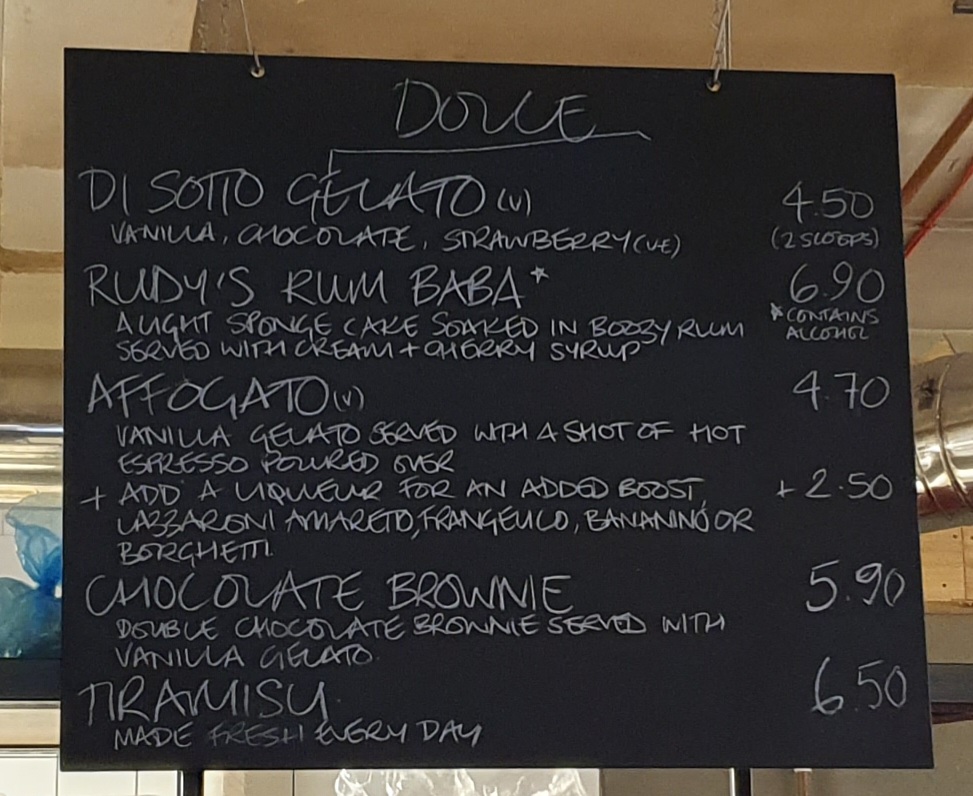 DOLCE
DI SOTTO GELATO (V) 4.50
VANILLA, CHOCOLATE, STRAWBERRY (VE) (2 SCOOPS)
RUDY'S RUM BABA* 6.90
A LIGHT SPONGE CAKE SOAKED IN BOOZY RUM *CONTAINS
SERVED WITH CREAM + CHERRY SYRUP ALCOHOL
AFFOGATO (V) 4.70
VANILLA GELATO SERVED WITH A SHOT OF HOT
ESPRESSO POURED OVER
+ ADD A LIQUEUR FOR AN ADDED BOOST, + 2.50
LAZZARONI AMARETO, FRANGELICO, BANANINO OR
BORGHETTI.
CHOCOLATE BROWNIE 5.90
DOUBLE CHOCOLATE BROWNIE SERVED WITH
VANILLA GELATO.
TIRAMISU 6.50
MADE FRESH EVERY DAY